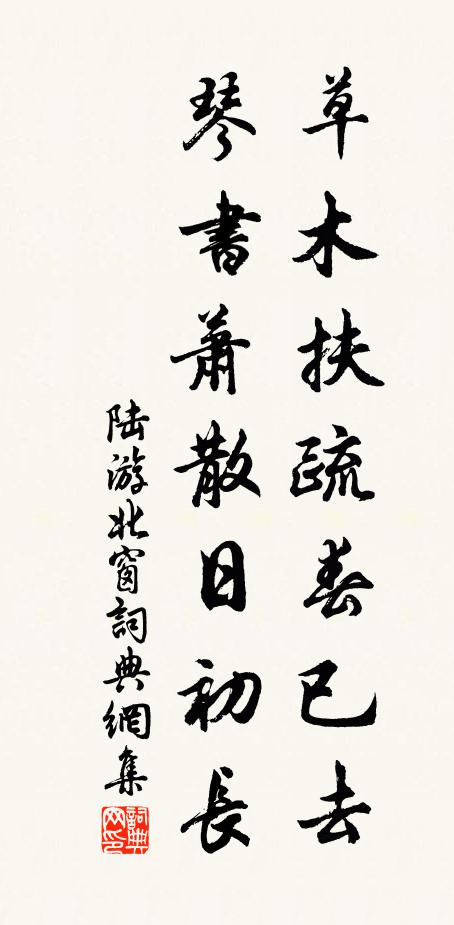 草木扶疏春已去
琴書蕭散日初長
陆游北窗詞典網集
詞典网印